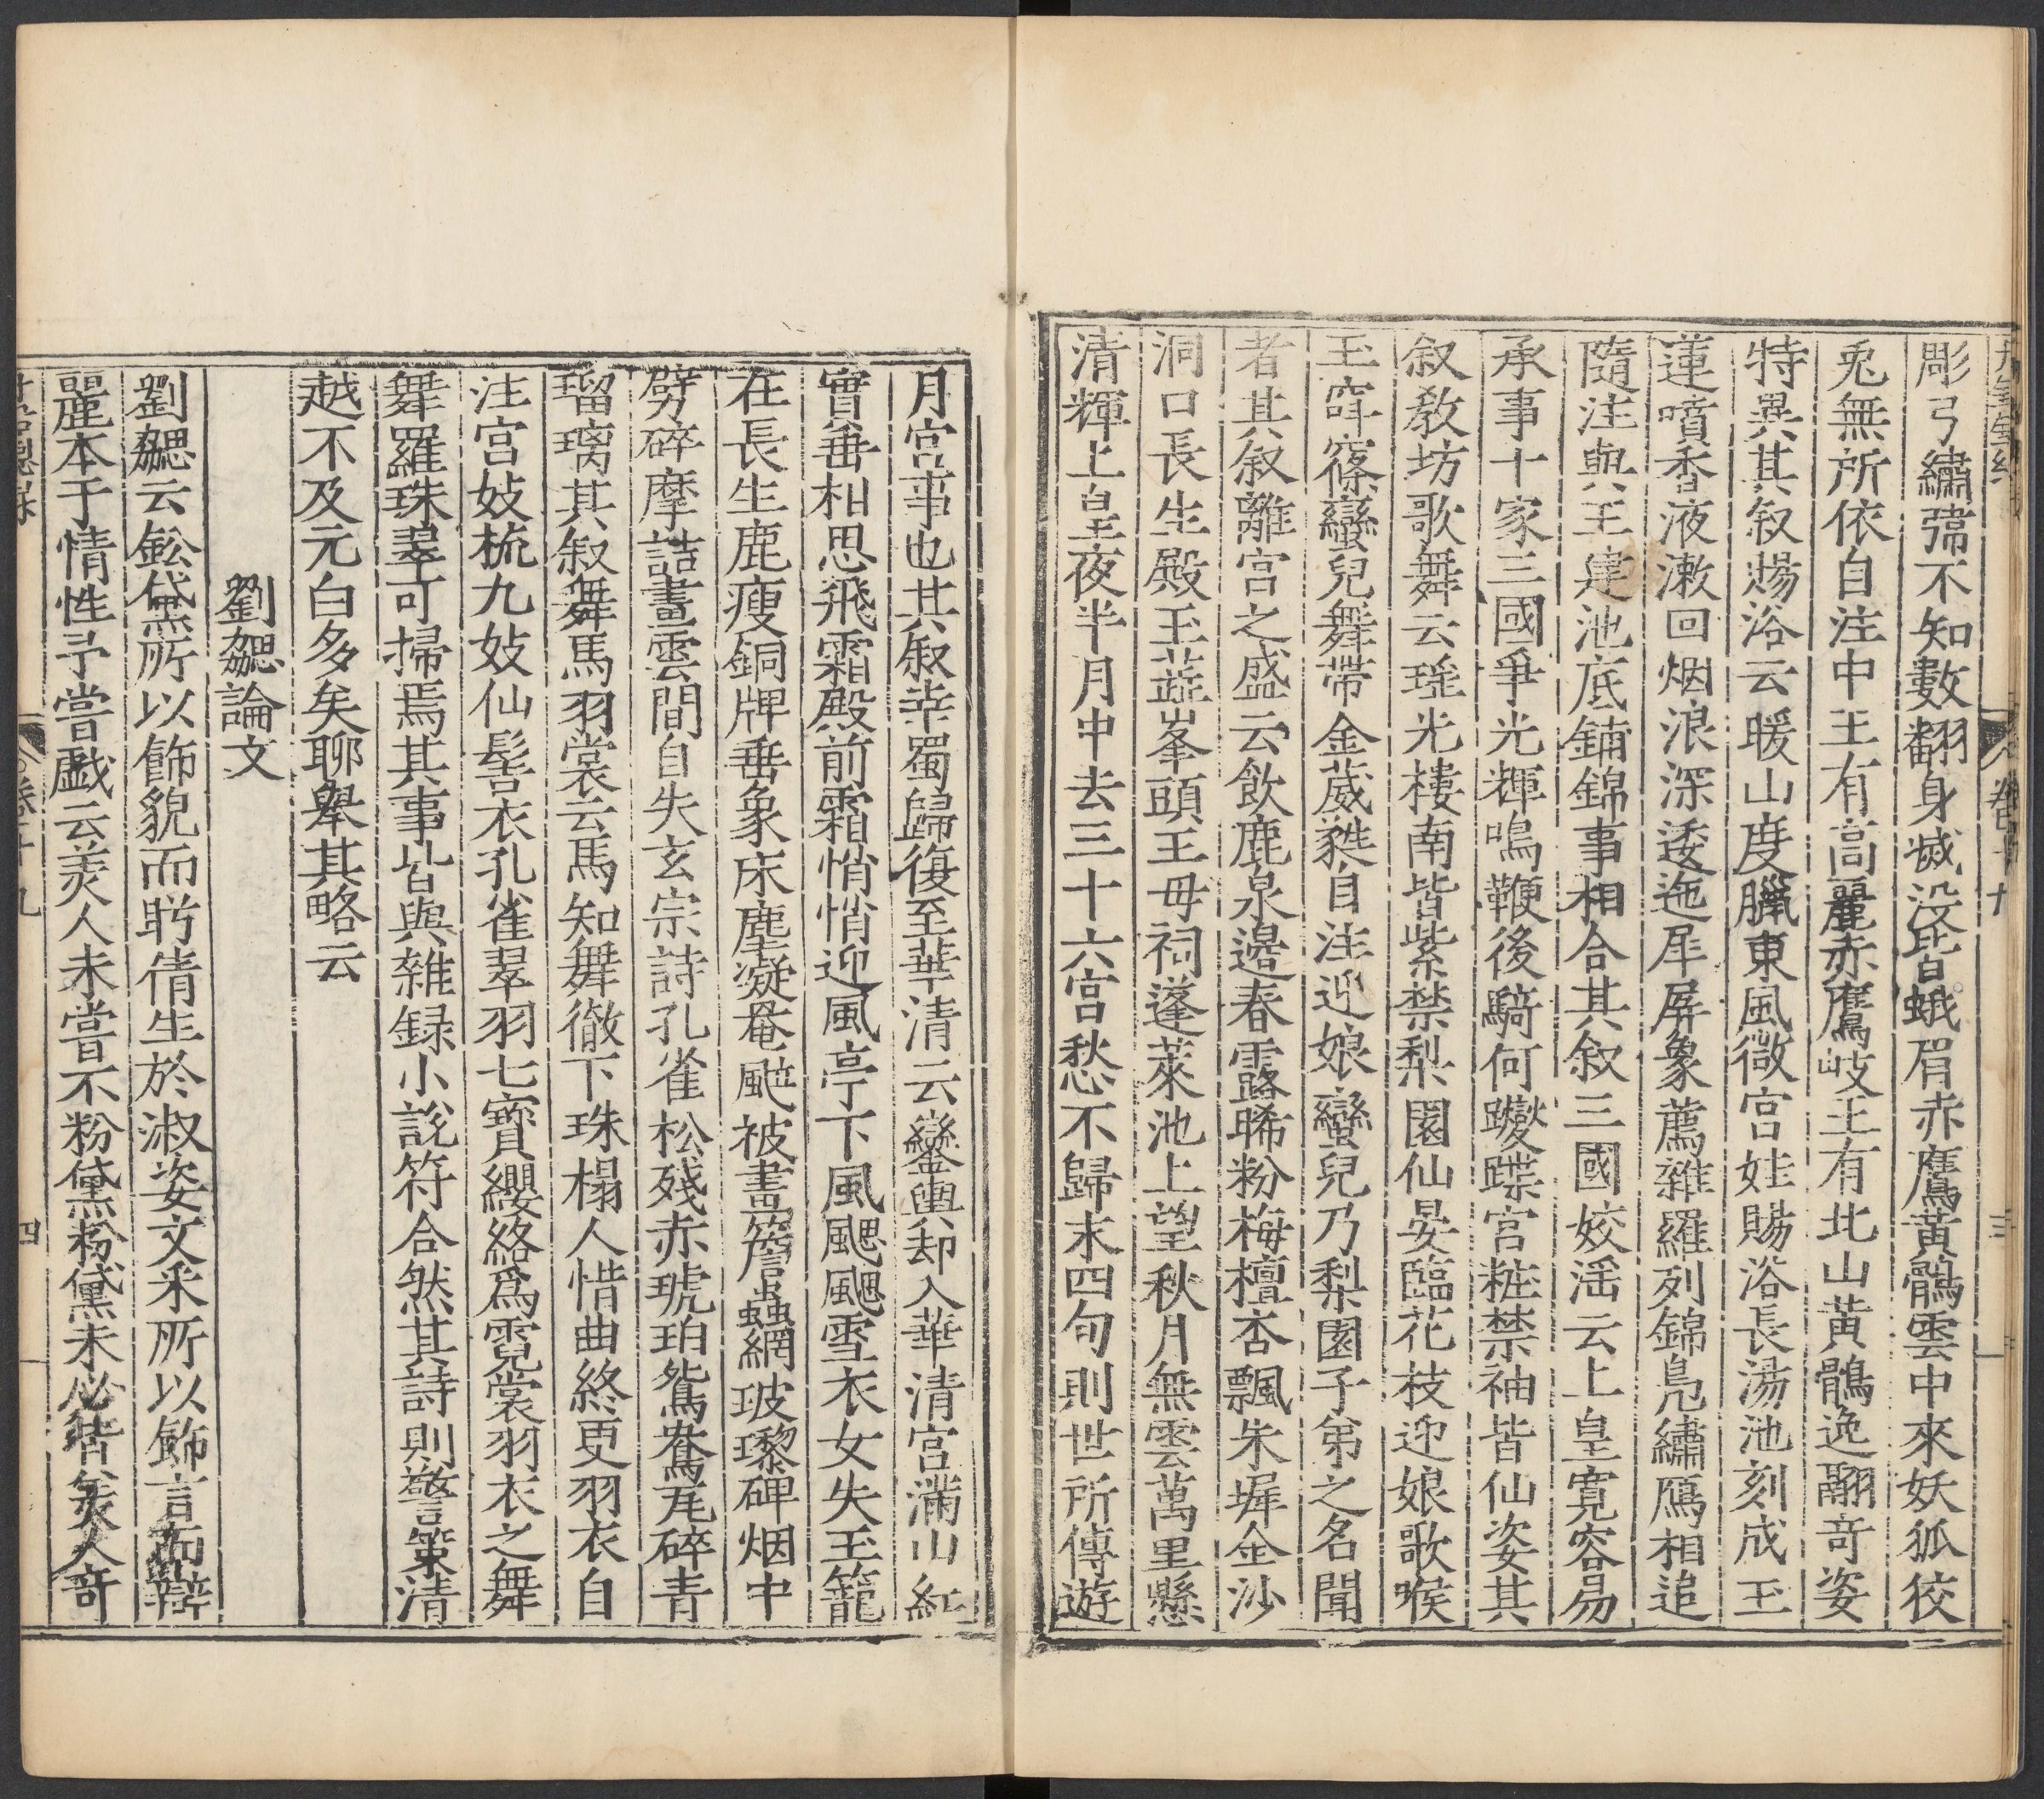 彫弓繡韣不知數翻身滅没皆蛾眉赤鷹黃鶻雲中來妖狐狡
兎無所依自注申王有高麗赤鷹岐王有北山黃鶻逸翮奇姿
特異其叙賜浴云暖山度臘東風微宫娃賜浴長湯池刻成玉
蓮噴香液漱回烟浪深逶迤犀屏象薦雜羅列錦鳧繡鴈相追
隨注與王建池底鋪錦事相合其叙三國姣淫云上皇寛容易
承事十家三國爭光輝鳴鞭後騎何躞蹀宫粧禁袖皆仙姿其
叙敎坊歌舞云瑶光樓南皆紫禁梨園仙晏臨花枝迎娘歌喉
玉窅窱蠻兒舞帶金葳蕤自注迎娘蠻兒乃梨園子弟之名聞
者其叙離宫之盛云飲鹿泉邉春露晞粉梅檀杏飄朱墀金沙
洞口長生殿玉蕋峯頭王母祠蓬萊池上望秋月無雲萬里懸
清輝上皇夜半月中去三十六宫愁不歸末四句則世所傳遊
月宫事也其叙幸蜀歸復至華清云鑾輿却入華清宫滿山紅
實垂相思飛霜殿前霜悄悄迎風亭下風颸颸雪衣女失玉籠
在長生鹿瘦銅牌垂象床塵凝罨颭被畫簷蟲網玻瓈碑烟中
劈碎摩詰畫雲間自失玄宗詩孔雀松殘赤琥珀鴛鴦瓦碎青
瑠璃其叙舞馬羽裳云馬知舞徹下珠榻人惜曲終更羽衣自
注宫妓梳九妓仙髻衣孔雀翠羽七寳纓絡爲霓裳羽衣之舞
舞羅珠翠可掃焉其事皆與雜録小說符合然其詩則警策清
越不及元白多矣聊舉其略云
劉勰論文
劉勰云鉛黛所以飾貌而盻倩生於淑姿文采所以飾言而辯
麗本于情性予嘗戱云美人未嘗不粉黛粉黛未必皆美人奇